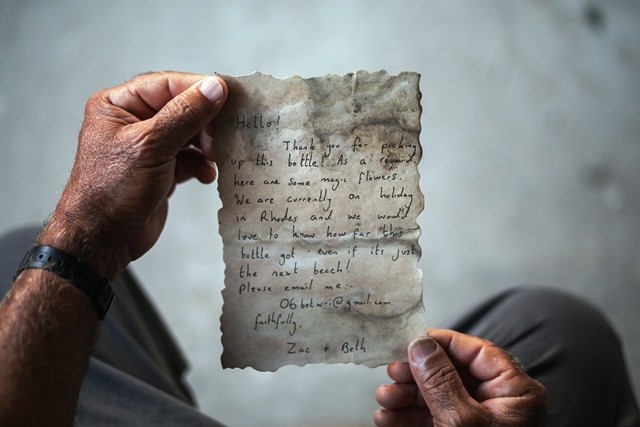 Hello!
Thank you for picking
up this bottle! As a reward
here are some magic flowers.
We are currently on holiday
in Rhodes and we would
love to know how far this
bottle got even if its just
the next beach!
Please email me:-
06betwri@gmail.com
faithfully,
Zac + Beth